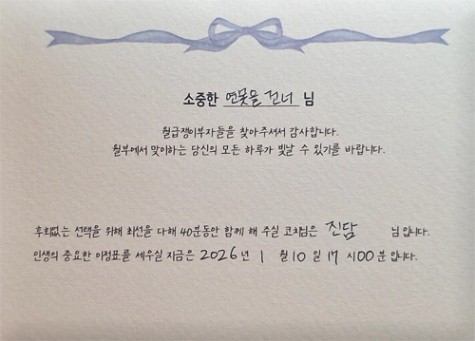 소중한 연못물 건너 님
월급쟁이부자들을 찾아주셔서 감사합니다.
월부에서 맞이하는 당신의 모든 하루가 빛날 수 있기를 바랍니다.
후회없는 선택을 위해 최선을 다해 40분동안 함께 해 주실 코치님은 진담 님 입니다.
인생의 중요한 이정표를 세우실 지금은 2026년 1월 10일 17시00분 입니다.